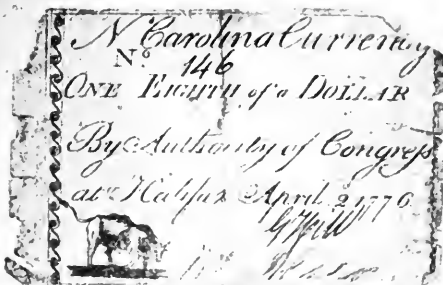 N Carolina Currency
No. 146
ONE EIGHTH of a DOLLAR
By Authority of Congress
at Halifax April 2 1776